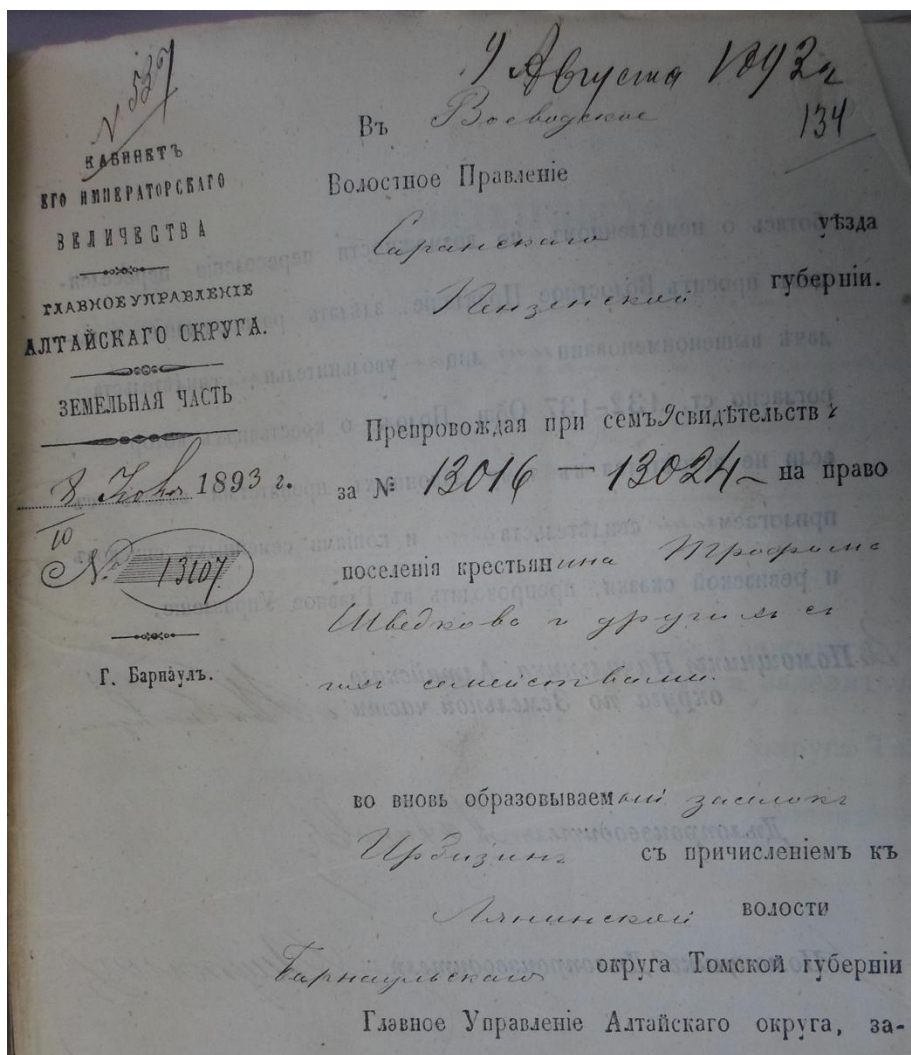 N 537
КАБИНЕТЪ
ЕГО ИМПЕРАТОРСКАГО
ВЕЛИЧЕСТВА
ГЛАВНОЕ УПРАВЛЕНІЕ
АЛТАЙСКАГО ОКРУГА.
ЗЕМЕЛЬНАЯ ЧАСТЬ
8 1893 г.
10
№ 13107.
Г. Барнаулъ.
Августа 1893 г
134
Въ Воеводское
Волостное Правленіе
Саранскаго уѣзда
Пензенской губерніи.
Препровождая при семъ 9 свидѣтельств
за № 13016 — 13024 на право
поселенія крестьянина Трофима
Шведкова и другихъ съ
семействами.
во вновь образовываемый
съ причисленіемъ къ
волости
Барнаульскаго округа Томской губерніи
Главное Управленіе Алтайскаго округа, за-